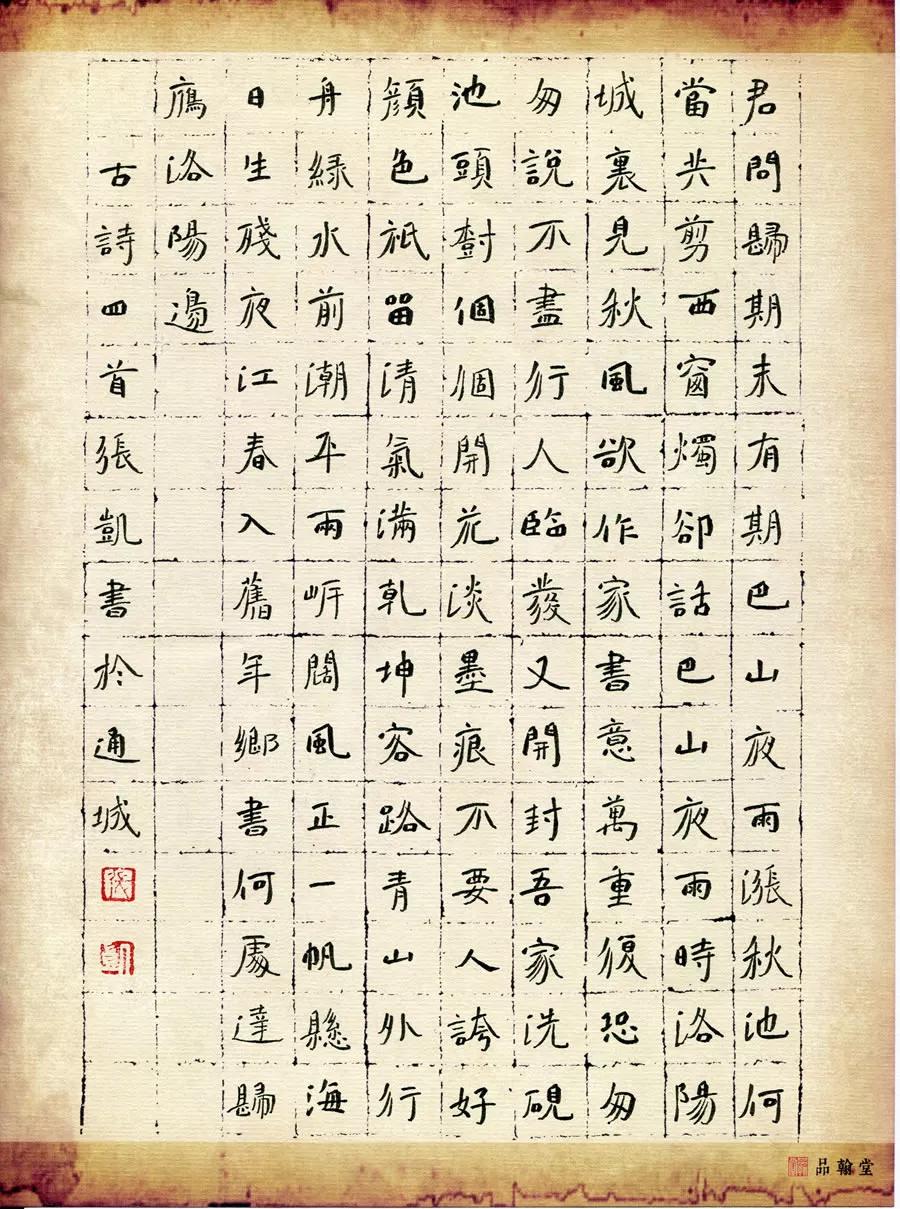 君問歸期未有期巴山夜雨漲秋池何
當共剪西窗燭卻話巴山夜雨時洛陽
城裏見秋風欲作家書意萬重復恐匆
匆說不盡行人臨發又開封吾家洗硯
池頭樹個個開花淡墨痕不要人誇好
顏色祇留清氣滿乾坤客路青山外行
舟綠水前潮平兩岸闊風正一帆懸海
日生殘夜江春入舊年鄉書何處達歸
鴈洛陽邊
古詩四首張凱書於通城
品翰堂